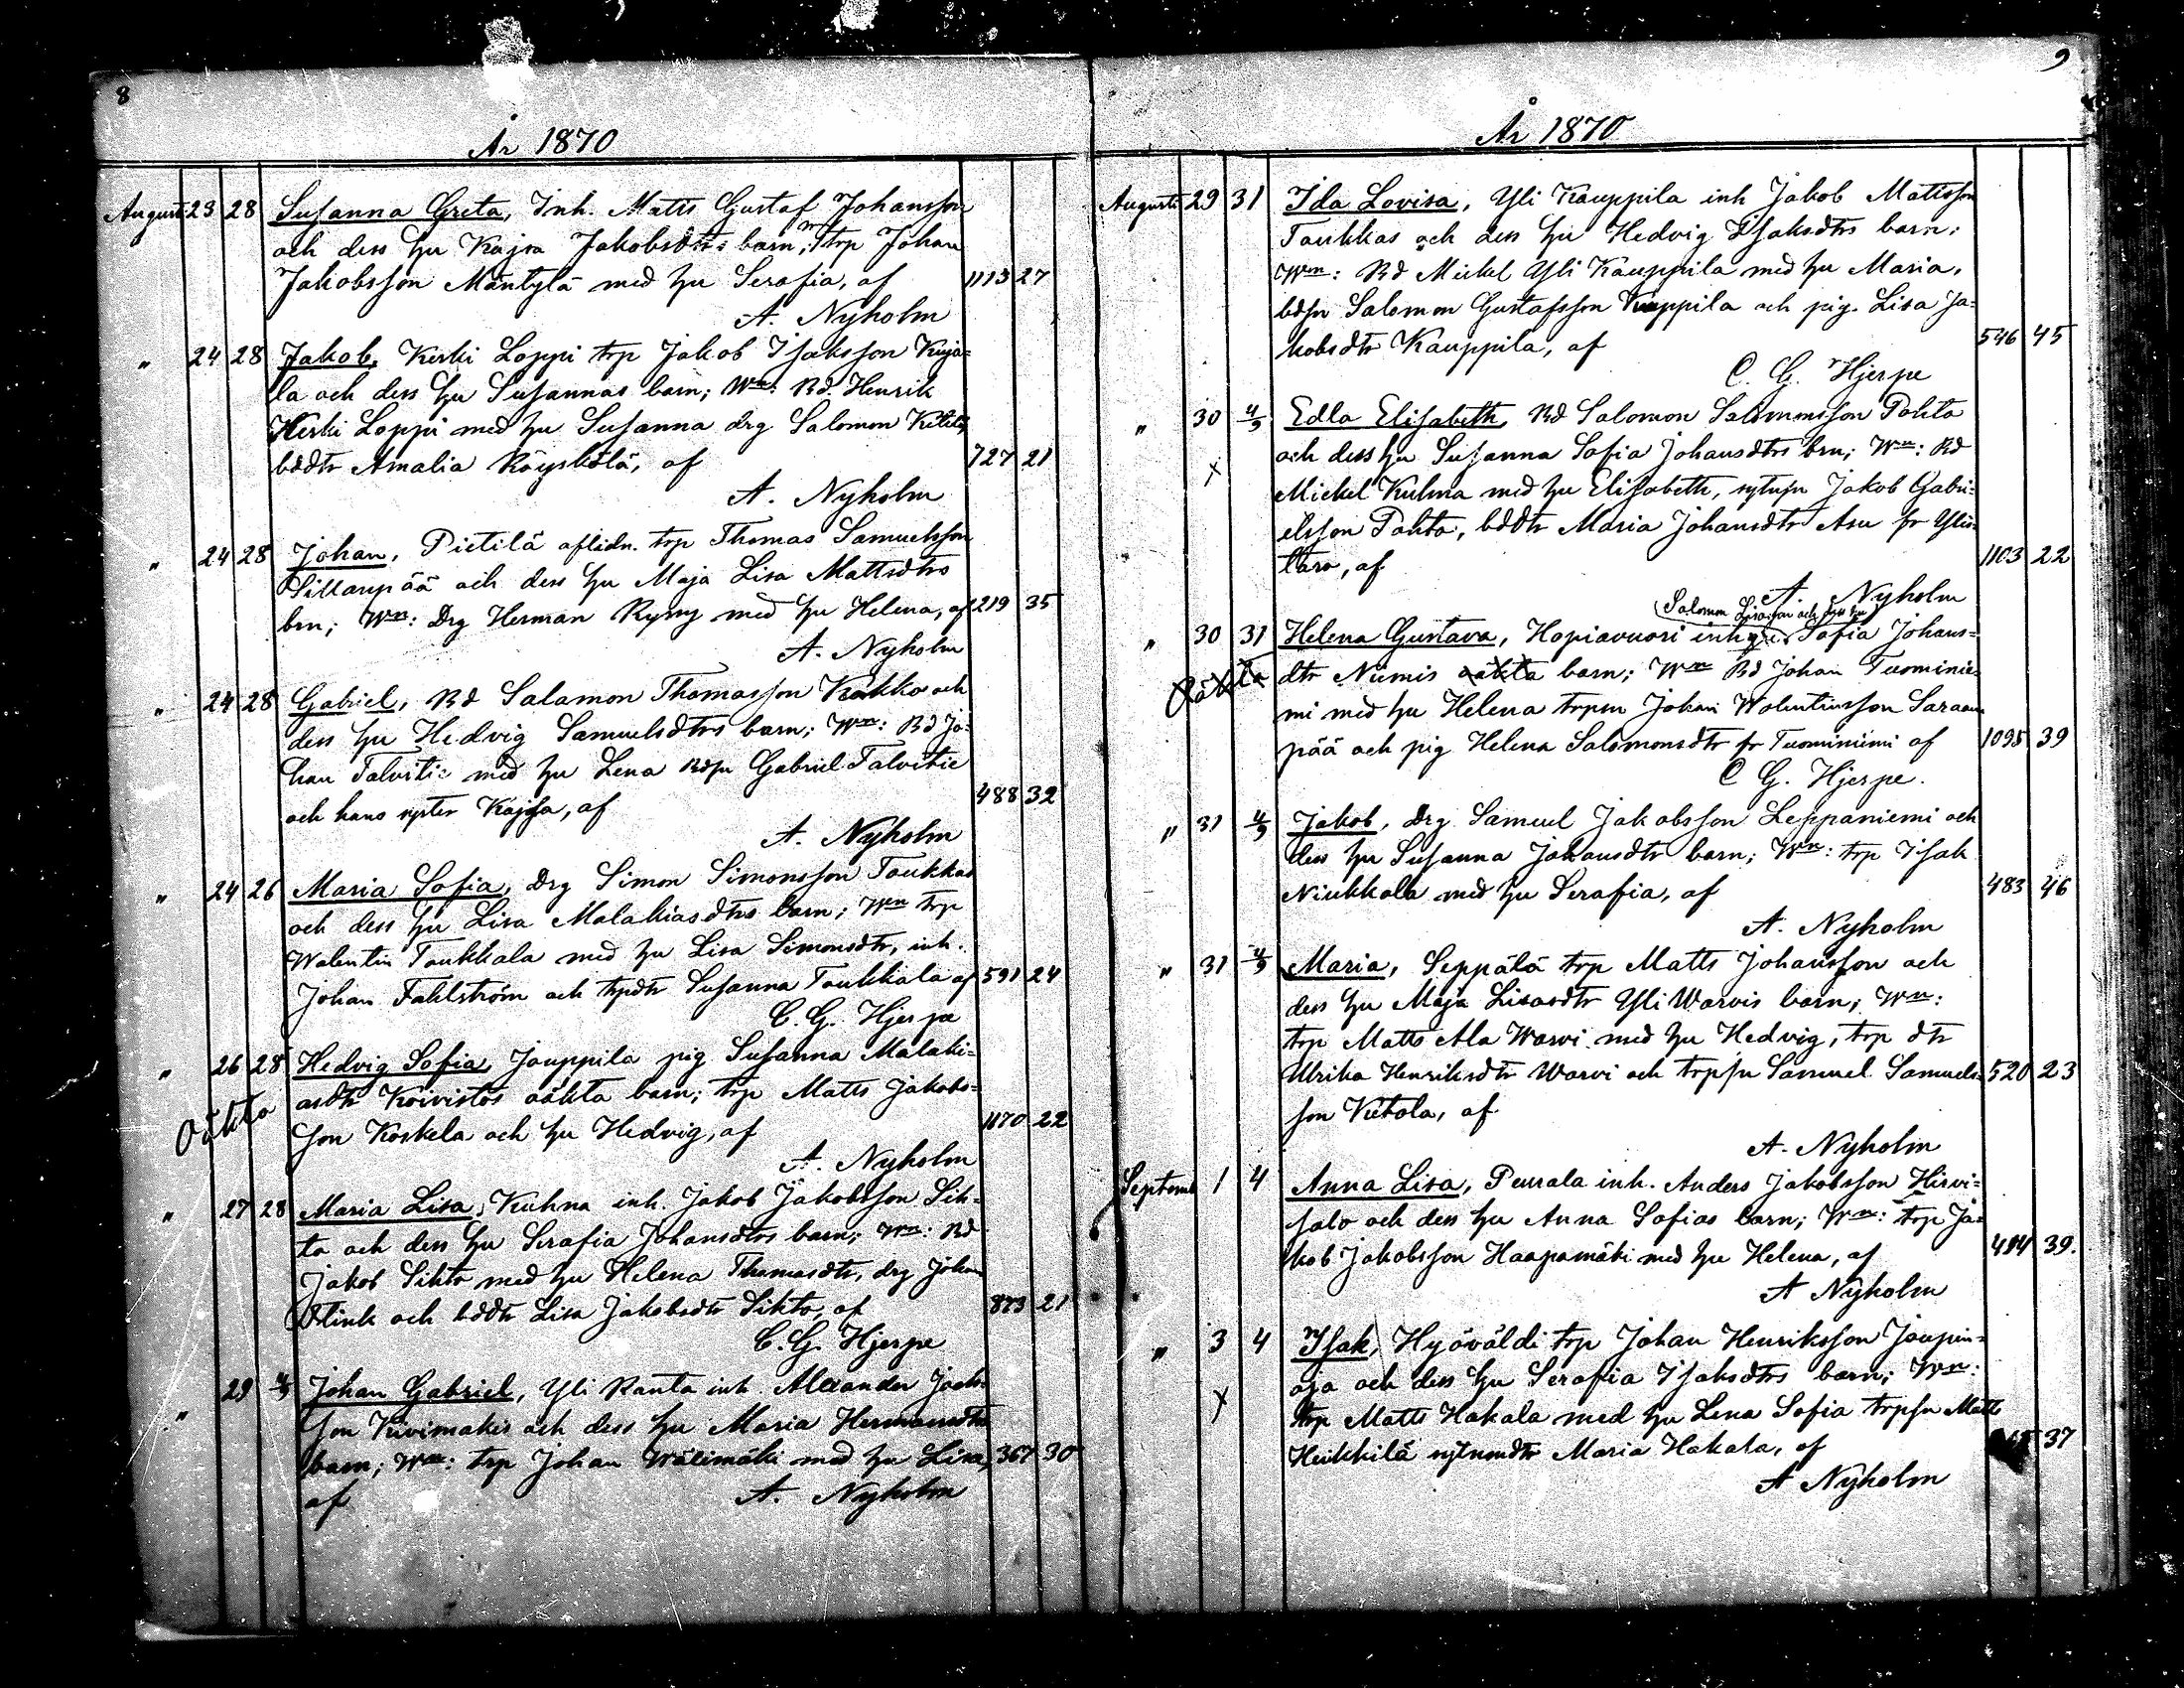 8
År 1870
Augusti 23 28 Susanna Greta, Inh. Matts Gustaf Johansson
och dess hu Kajsa Jakobsdtrs barn; Wn trp Johan
Jakobsson Mäntylä med hu Serafia, af 1113 27
A. Nyholm
" 24 28 Jakob, Kerki Loppi trp Jakob Isaksson Kuja=
la och dess hu Susannas barn; Wn: Bd. Henrik
Kerki Loppi med hu Susanna drg Salomon
bddtr Amalia Röyskölä, af 727 21
A. Nyholm
" 24 28 Johan, Pietilä aflidn. trp Thomas Samuelsson
Sillanpää och dess hu Maja Lisa Mattsdtrs
brn; Wn: Drg Herman Ryssy med hu Helena, af 219 35
A. Nyholm
" 24 28 Gabriel, Bd Salamon Thomasson Kokko och
dess hu Hedvig Samuelsdtrs barn; Wn: Bd Jo=
han Talvitie med hu Lena Bdsn Gabriel Talvitie
och hans syster Kajsa, af 488 32
A. Nyholm
" 24 26 Maria Sofia, Drg Simon Simonsson Toukkas
och dess hu Lisa Malakiasdtrs barn; Wn trp
Walentin Toukkala med hu Lisa Simonsdtr, inh.
Johan Fahlström och trpdtr Susanna Toukkala af 591 24
C. G. Hjerpe
" 26 28 Hedvig Sofia, Jouppila pig Susanna Malaki=
asdtr Koivistos oäkta barn; trp Matts Jakobs=
Oäkta son Koskela och hu Hedvig, af 1170 22
A. Nyholm
" 27 28 Maria Lisa, Kuhna inh. Jakob Jakobsson Sih=
to och dess hu Serafia Johansdtrs barn; Wn: Bd
Jakob Sihto med hu Helena Thomasdtr, drg Johan
Flink och bddtr Lisa Jakobsdtr Sihto, af 873 21
C. G. Hjerpe
" 29 4/9 Johan Gabriel, Yli Ranta inh. Alexander Jaak=
son Kivimäkis och dess hu Maria Hermansdtrs
barn; Wn: trp Johan Wälimäki med hu Lisa, 367 30
af A. Nyholm
9
År 1870
Augusti 29 31 Ida Lovisa, Yli Kauppila inh Jakob Mattsson
Toukkas och dess hu Hedvig Isaksdtrs barn;
Wn: Bd Mickel Yli Kauppila med hu Maria,
bdsn Salomon Gustafsson Kauppila och pig. Lisa Ja=
kobsdtr Kauppila, af 546 45
C. G. Hjerpe
" 30 4/9 Edla Elisabeth, Bd Salomon Salomonsson Pohto
x och dess hu Susanna Sofia Johansdtrs brn; Wn: Bd
Mickel Kuhna med hu Elisabeth, sytnsn Jakob Gabri=
elsson Pohto, bddtr Maria Johansdtr Asu fr Ylis=
taro, af 1103 22
A. Nyholm
Salomon och dess hu
" 30 31 Helena Gustava, Hopiavuori inh Sofia Johans=
Oäkta dtr Niemis oäkta barn; Wn Bd Johan Tuominie=
mi med hu Helena trpsn Johan Walentinsson Saraan
pää och pig Helena Salomonsdtr fr Tuominiemi af 1095 39
C G. Hjerpe.
" 31 4/9 Jakob, Drg Samuel Jakobsson Leppaniemi och
dess hu Susanna Johansdtr barn; Wn: trp Isak
Niukkala med hu Serafia, af 483 46
A. Nyholm
" 31 4/9 Maria, Seppälä trp Matts Johansson och
dess hu Maja Lisasdtr Yli Warvis barn; Wn:
trp Matts Ala Warvi med hu Hedvig, trp dtr
Ulrika Henriksdtr Warvi och trpsn Samuel Samuels= 520 23
son Kietola, af
A. Nyholm
Septemb 1 4 Anna Lisa, Peurala inh. Anders Jakobsson Hirvi=
salo och dess hu Anna Sofias barn; Wn: trp Ja=
kob Jakobsson Haapamäki med hu Helena, af 494 39.
A Nyholm
" 3 4 Isak, Hyöväldi trp Johan Henriksson Joupin=
x oja och dess hu Serafia Isaksdtrs barn; Wn:
trp Matts Hakala med hu Lena Sofia trpsn Matts
Heikkilä sytnsdtr Maria Hakala, af 37
A Nyholm